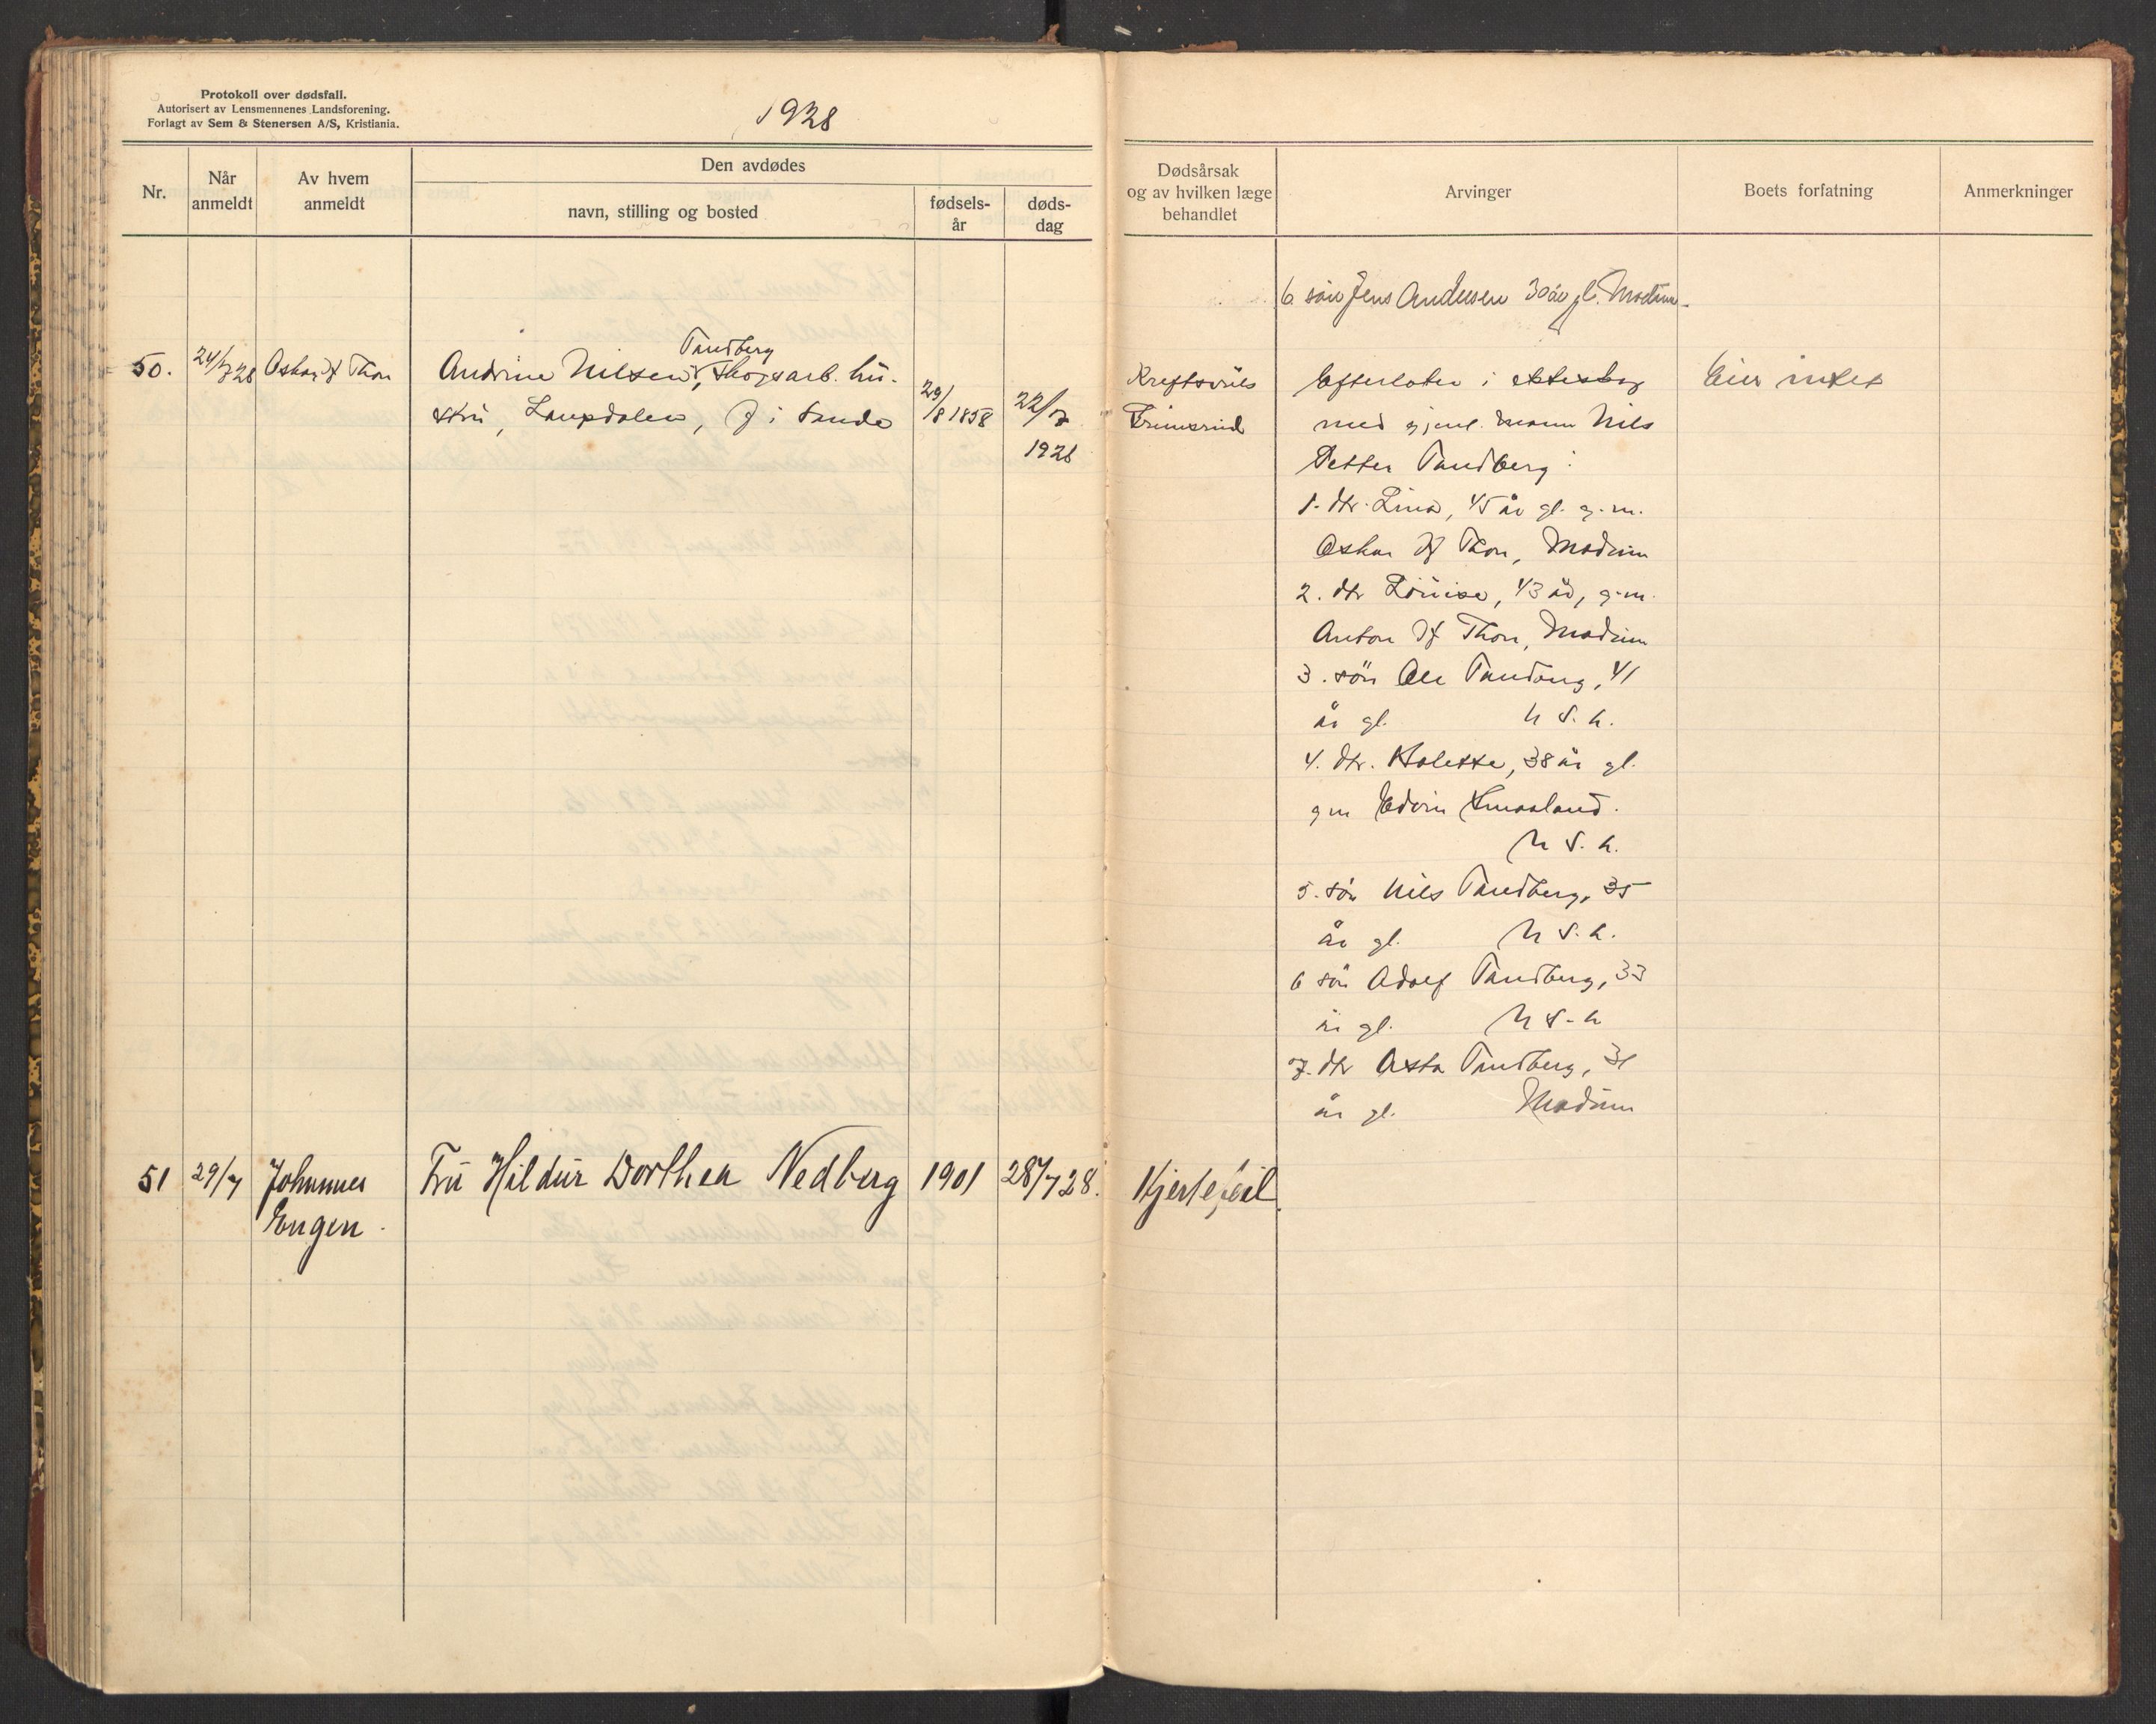 Protokoll over dødsfall.
Autorisert av Lensmennenes Landsforening.
Forlagt av Sem & Stenersen A/S, Kristiania.
1928
Nr.
Når anmeldt
Av hvem anmeldt
Den avdødes
navn, stilling og bosted
fødsels-år
døds-dag
Dødsårsak og av hvilken læge behandlet
Arvinger
Boets forfatning
Anmerkninger
6 søn Jens Andersen 30 år gl. Modum
50. 24/7 28 Oskar Thon
Tandberg
Andrine Nilsen, skogsarb. hu-
stru, i Sande
29/8 1858
22/7
1928
Kreftsvuls
Efterlater i ekteskap
med gjenl. mann Nils
Petter Tandberg:
1. dtr. Lina, 45 år gl. g.m.
Oskar Thon, Modum
2. dtr Louise, 43 år, g.m.
Anton Thon, Modum
3. søn Ole Tandberg, 41
år gl. h s. h.
4. dtr. Kolette, 38 år gl.
gm Edvin Smaaland.
h s. h.
5. søn Nils Tandberg, 35
år gl. h s. h.
6 søn Adolf Tandberg, 33
år gl. h s. h
7. dtr Asta Tandberg, 31
år gl. Modum
Eier intet
51 29/7 Johannes
Engen.
Fru Hildur Dorthea Nedberg 1901 28/7 28.
Hjertefeil.